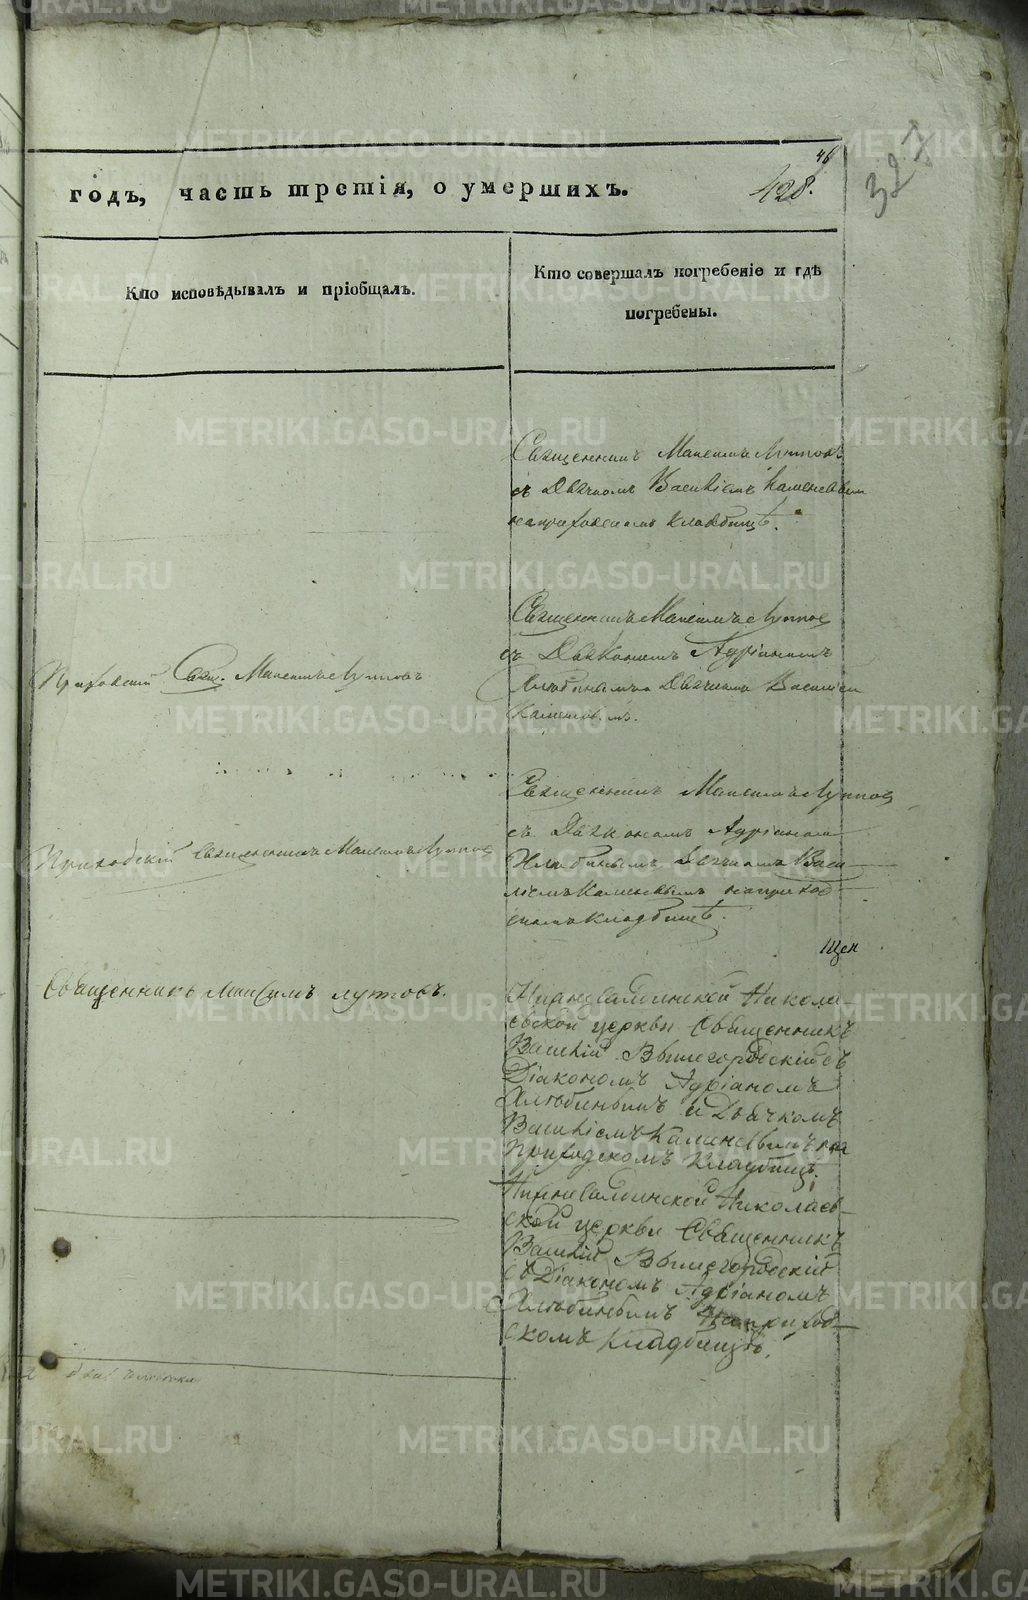 46
428.
327
годъ, часть третія, о умершихъ.
Кто исповѣдывалъ и пріобщалъ.
Кто совершалъ погребеніе и гдѣ
погребены.
Священникъ Максимъ Лупповъ
съ Дьячкомъ Василіемъ Каменевымъ
на приходскомъ кладбищѣ.
Приходскій Свящ. Максимъ Лупповъ
Священникъ Максимъ Луппов
съ Діакономъ Адріаномъ
Хлюбинымъ Дьячкомъ Василіем
Каменевымъ.
Приходскій священникъ Максимъ Луппов
Священникъ Максимъ Луппов
съ Діакономъ Адріаном
Хлюбинымъ Дьячкомъ Васи
ліемъ Каменевымъ на приход
скомъ кладбищѣ.
Щен
Священникъ Максимъ Лупповъ.
Никола
евской церкви Священникъ
Василій Вышегородскій съ
Діакономъ Адріаномъ
Хлюбинымъ и Дьячкомъ
Василіемъ Каменевымъ на
приходскомъ Кладбищѣ;
Николаев
ской церкви Священникъ
Василій Вышегородскій
съ Діакономъ Адріаномъ
Хлюбинымъ на приход
скомъ Кладбищѣ.
METRIKI.GASO-URAL.RU